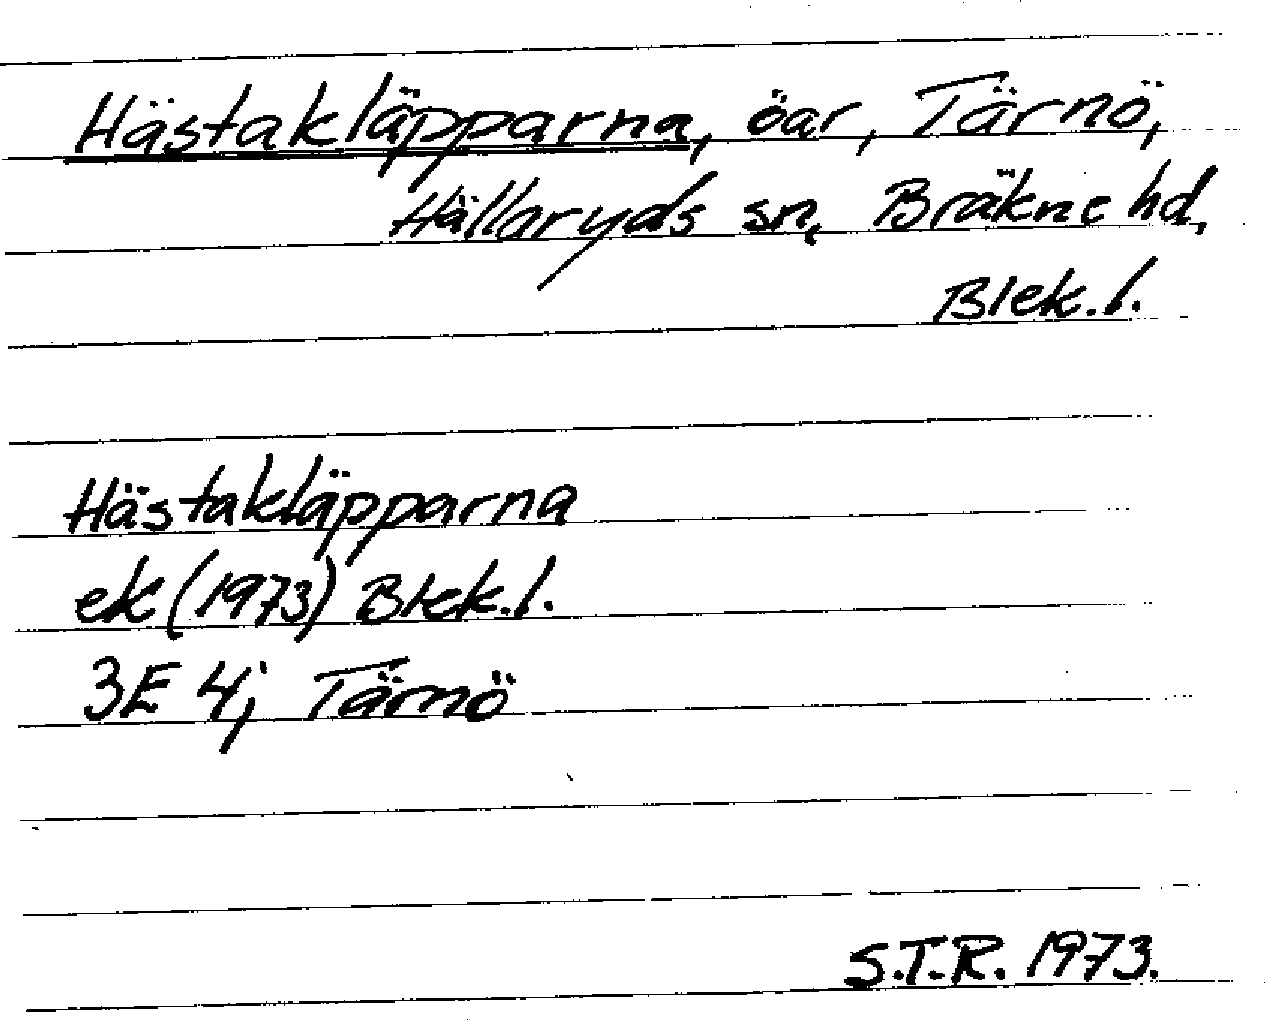 Hästakläpparna, öar, Tärnö,
Hällaryds sn, Bräkne hd,
Blek. l.
Hästakläpparna
ek (1973) Blek. l.
3E 4j Tärnö
S.T.R. 1973.